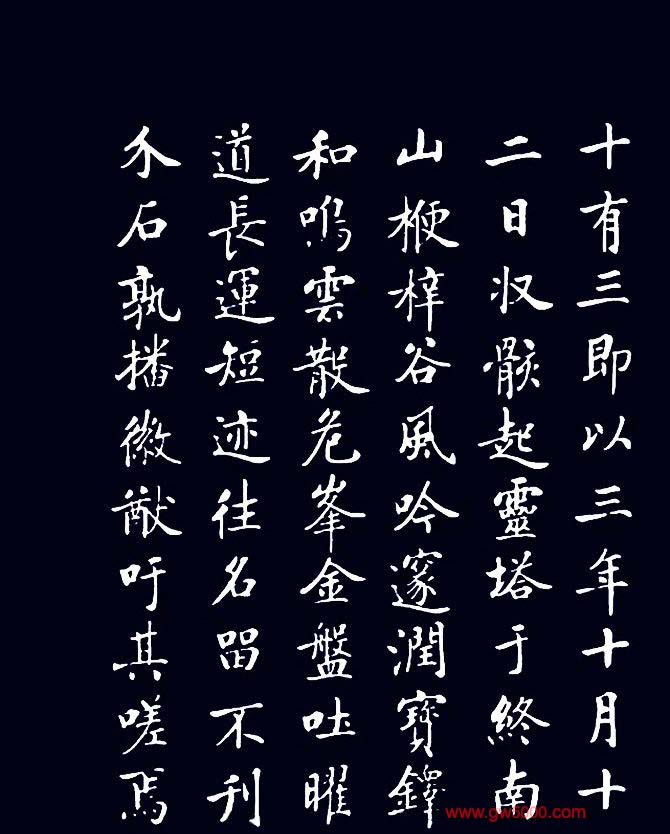 十有三即以三年十月十
二日収骸起靈塔于終南
山楩梓谷風吟邃澗寶鐸
和鳴雲散危峯金盤吐曜
道長運短迹往名留不刋
介石孰播徽猷吁其嗟焉
www.gw5000.com